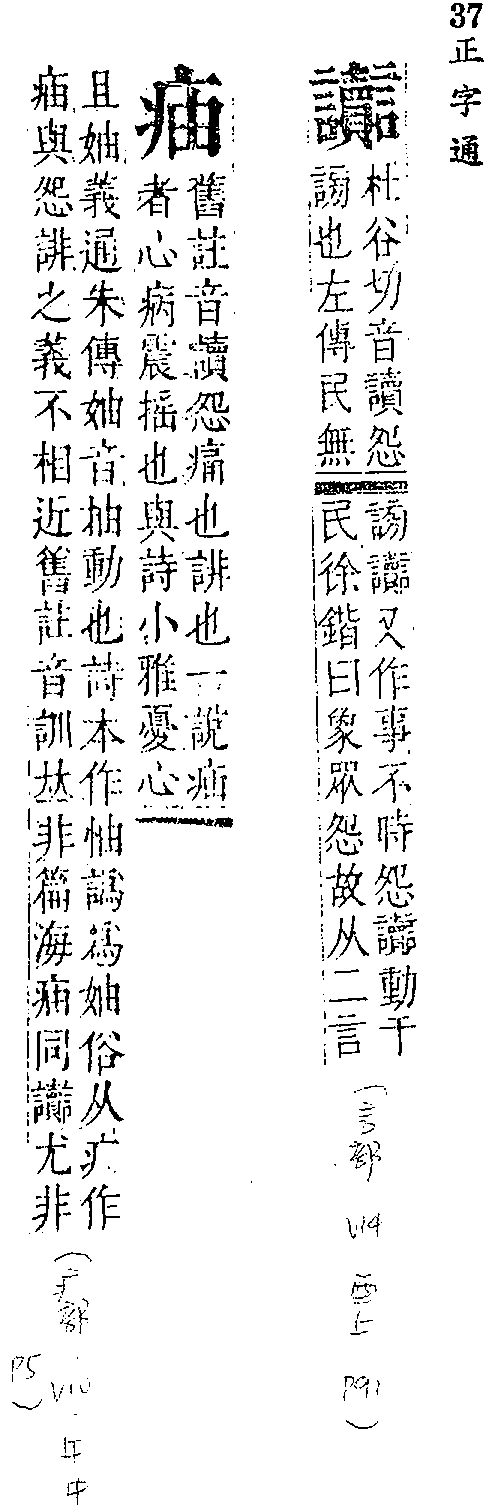 37正字通
讟
杜谷切音讀怨
謗也左傳民無
謗讟又作事不時怨讟動于
民徐鍇曰象眾怨故从二言
(言部 V14 酉上 P91)
㾄
舊註音讀怨痛也誹也一說㾄
者心病震搖也與詩小雅憂心
且妯義通朱傳妯音抽動也詩本作怞譌為妯俗从疒作
㾄與怨誹之義不相近舊註音訓𠀤非篇海㾄同讟尤非
(疒部 V10 午中 P5)